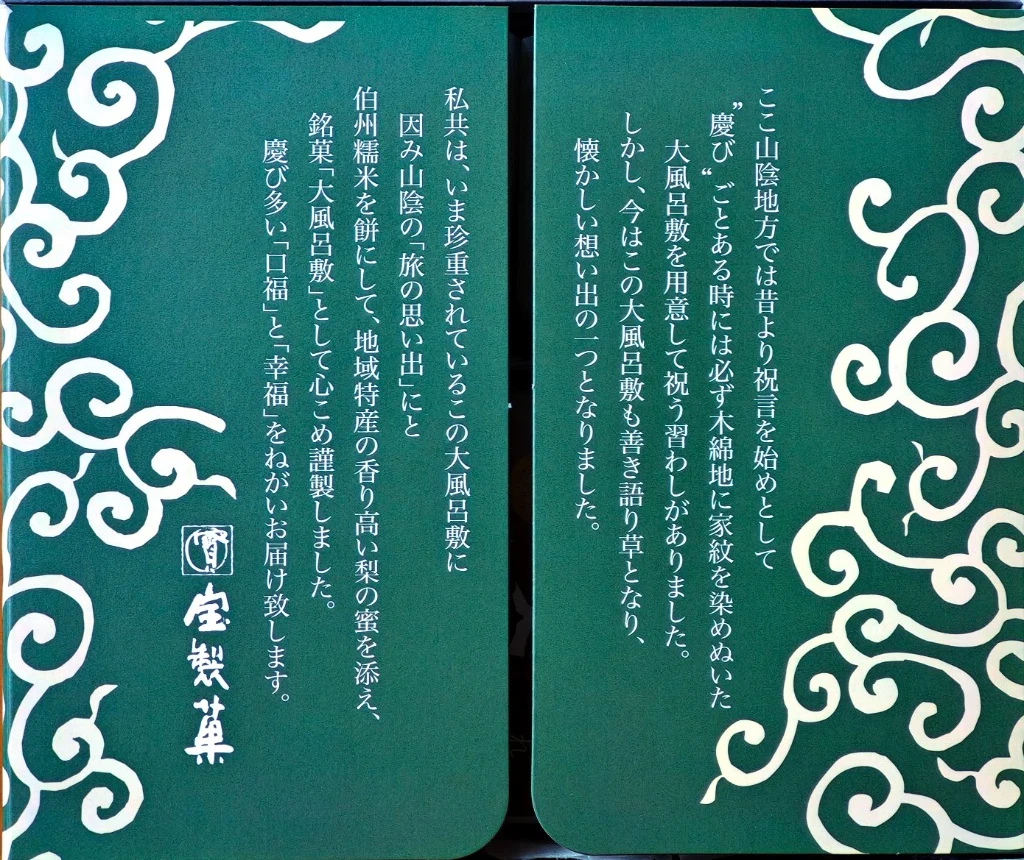 ここ山陰地方では昔より祝言を始めとして
”慶び“ごとある時には必ず木綿地に家紋を染めぬいた
大風呂敷を用意して祝う習わしがありました。
しかし、今はこの大風呂敷も善き語り草となり、
懐かしい想い出の一つとなりました。
私共は、いま珍重されているこの大風呂敷に
因み山陰の「旅の思い出」にと
伯州糯米を餅にして、地域特産の香り高い梨の蜜を添え、
銘菓「大風呂敷」として心こめ謹製しました。
慶び多い「口福」と「幸福」をねがいお届け致します。
寳
宝製菓